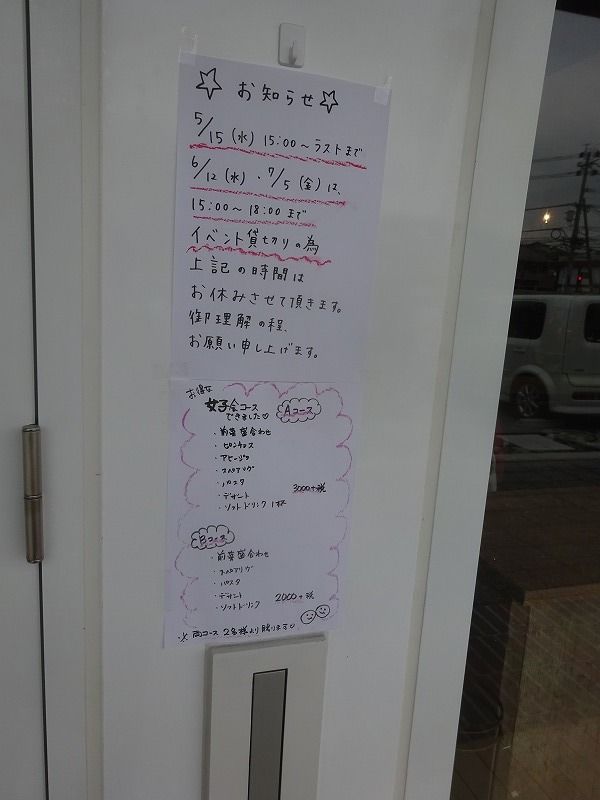 ☆ お知らせ ☆
5/15 (水) 15:00～ラストまで
6/12 (水)・7/5 (金) は、
15:00～18:00まで
イベント貸切りの為
上記の時間は
お休みさせて頂きます。
御理解の程、
お願い申し上げます。
お得な
女子会コース
できました♡
Aコース
・前菜盛合わせ
・ピンチョス
・アヒージョ
・スペアリブ
・パスタ
・デザート
・ソフトドリンク1杯
3000+税
Bコース
・前菜盛合わせ
・スペアリブ
・パスタ
・デザート
・ソフトドリンク
2000+税
※両コース 2名様より賜ります♡